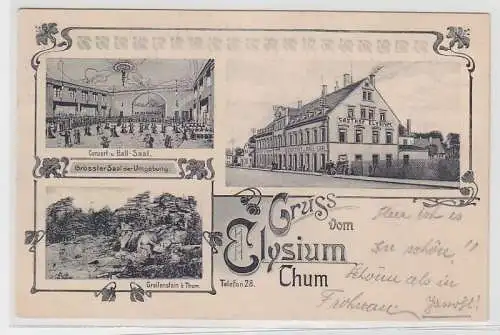 Concert u. Ball-Saal.
Grösster Saal der Umgebung.
Greifenstein b. Thum.
GASTHOF ELYSIUM
Gruss vom
Elysium
Thum
Telefon 28.
Hier ist es
so schön!!
Schöner als in
Frohnau